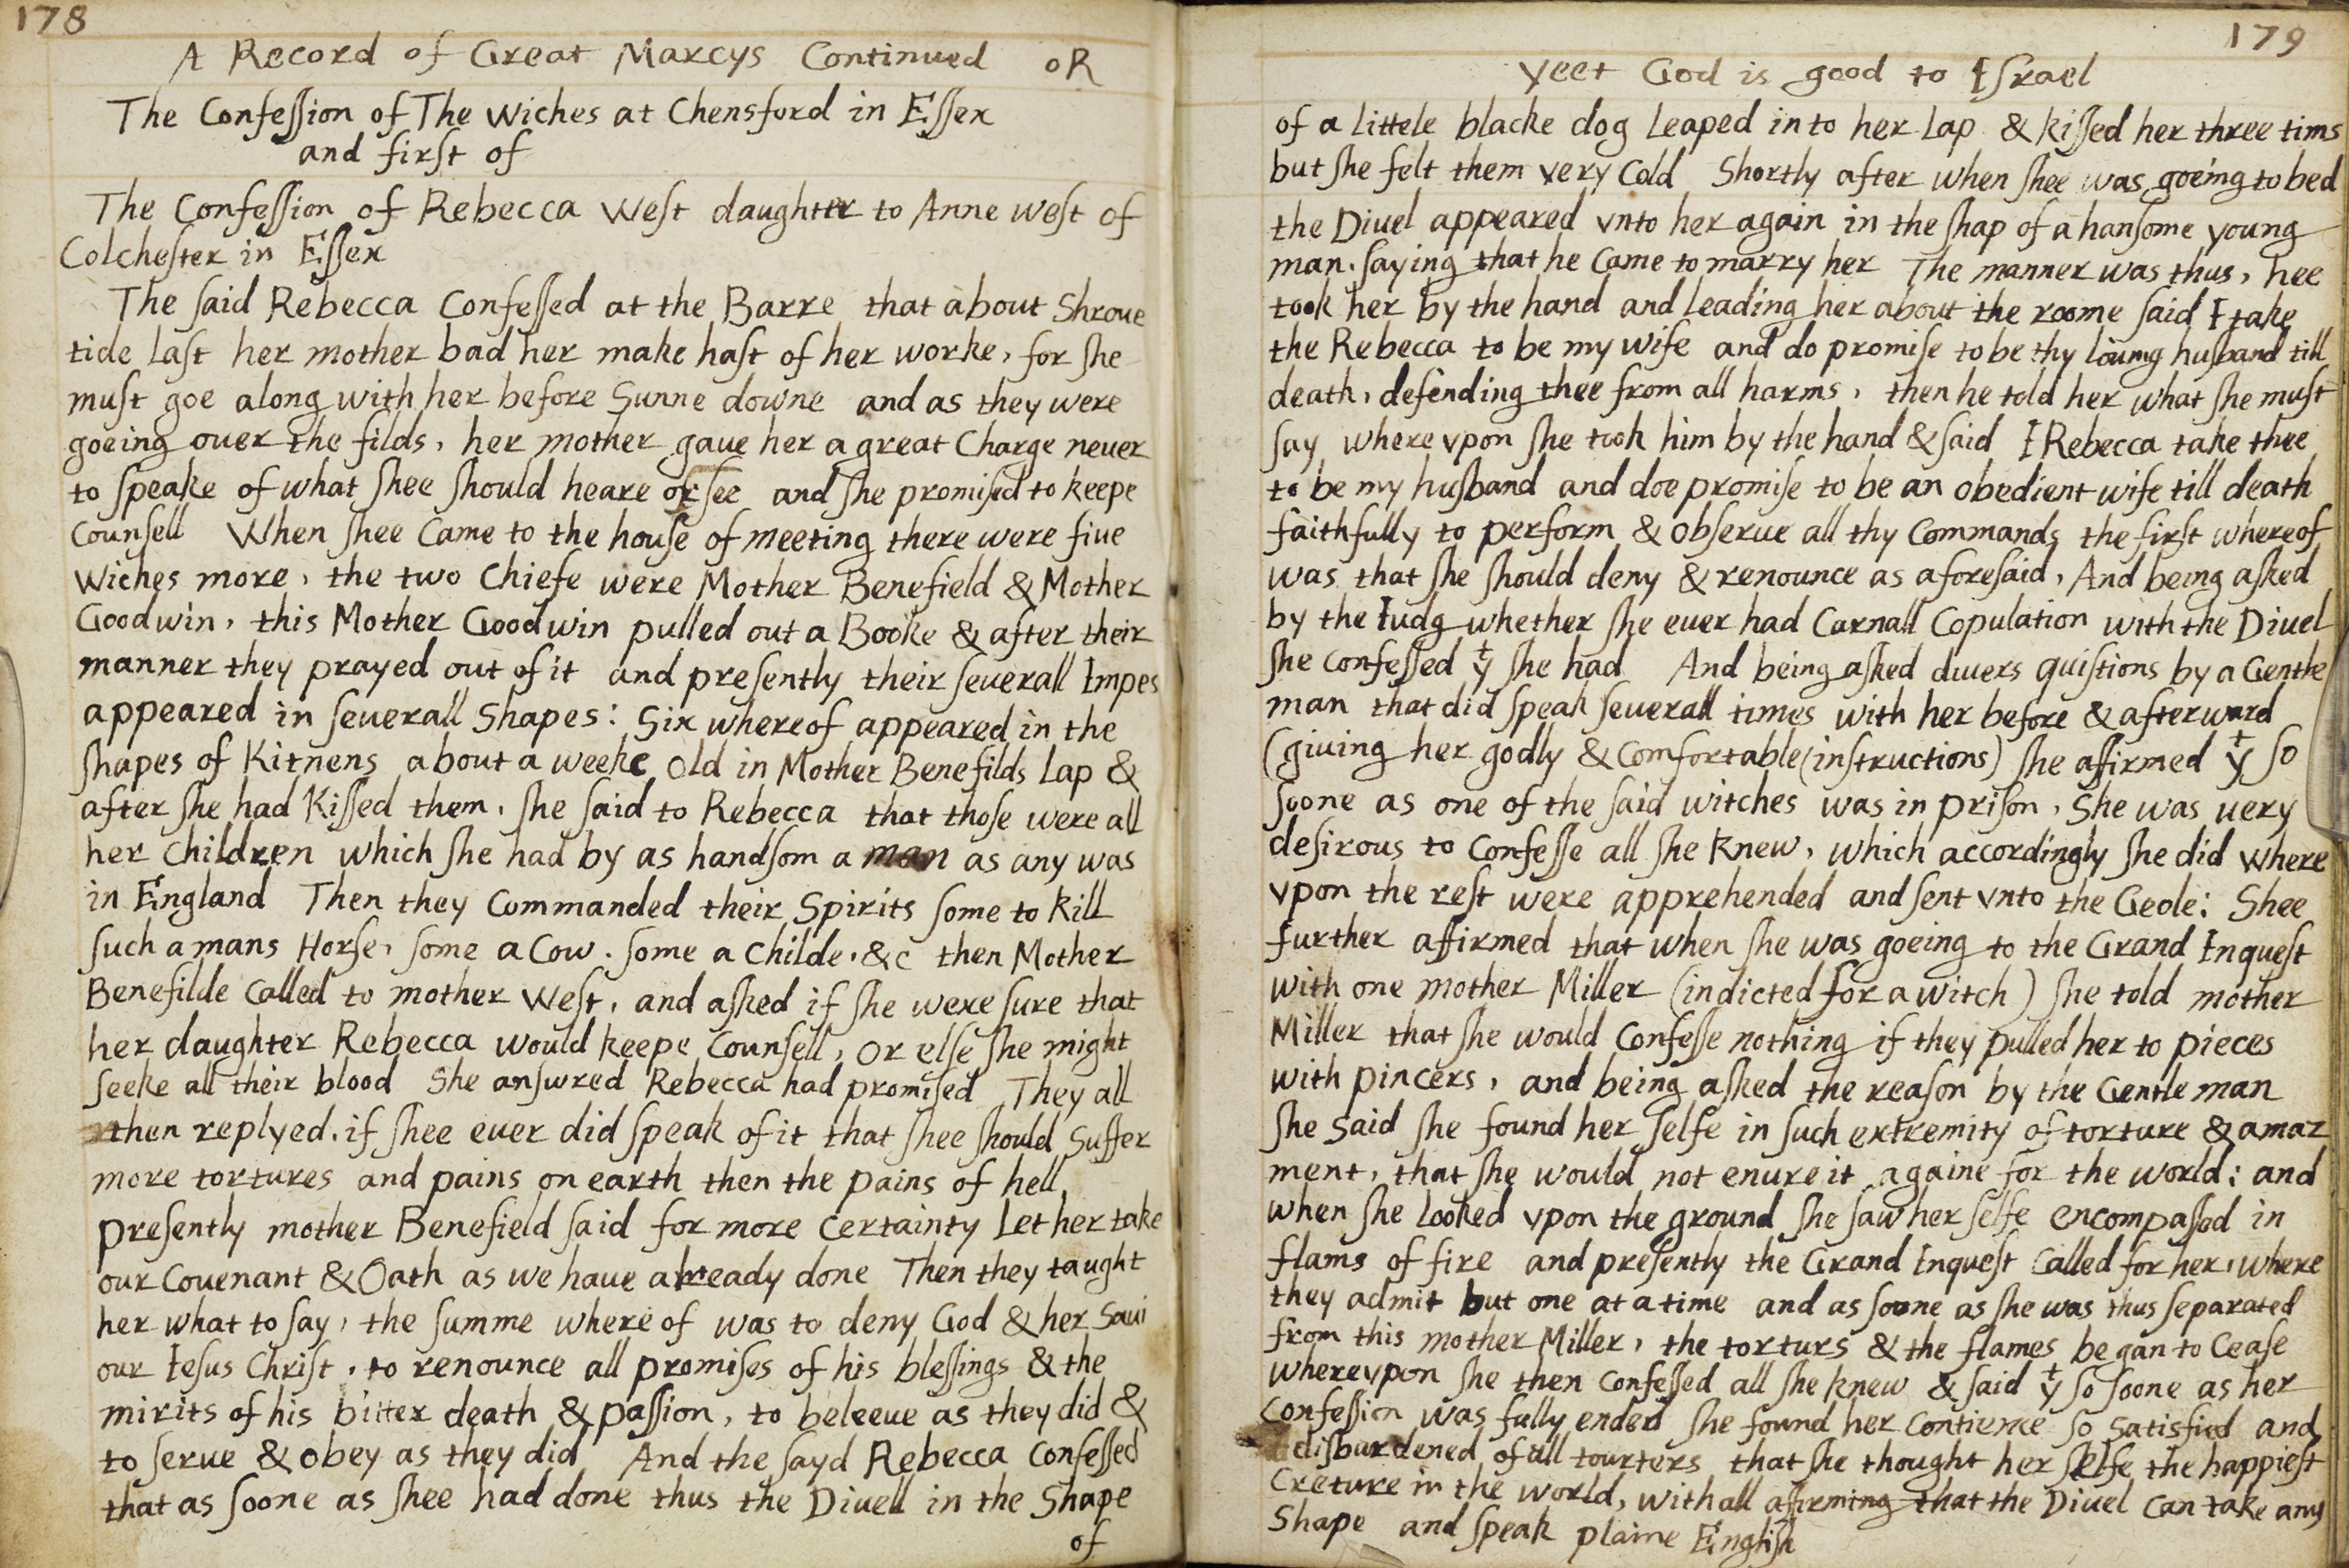 178
A Record of Great Marcys Continued oR
The Confeſſion of The Wiches at Chensford in Eſſex
and firſt of
The Confeſſion of Rebecca Weſt daughter to Anne Weſt of
Colcheſter in Eſſex
The ſaid Rebecca Confeſſed at the Barre that about Shroue
tide Laſt her mother bad her make haſt of her worke, for ſhe
muſt goe along with her before Sunne downe and as they were
goeing ouer the filds, her mother gaue her a great Charge neuer
to ſpeake of what ſhee ſhould heare or ſee and ſhe promiſed to keepe
Counſell When ſhee Came to the houſe of meeting there were fiue
Wiches more, the two Chiefe were Mother Benefield & Mother
Goodwin, this Mother Goodwin pulled out a Booke & after their
manner they prayed out of it and preſently their ſeuerall Impes
appeared in ſeuerall Shapes: Six whereof appeared in the
ſhapes of Kitnens about a weeke Old in Mother Benefilds Lap &
after ſhe had Kiſſed them, ſhe ſaid to Rebecca that thoſe were all
her Children which ſhe had by as handſom a man as any was
in England Then they Commanded their Spirits ſome to kill
ſuch a mans Horſe, ſome a Cow. ſome a Childe, &c then Mother
Benefilde Called to mother Weſt, and aſked if ſhe were ſure that
her daughter Rebecca would keepe Counſell, Or elſe ſhe might
ſeeke all their blood She anſwred Rebecca had promiſed They all
then replyed, if ſhee euer did ſpeak of it that ſhee ſhould Suffer
more tortures and pains on earth then the pains of hell,
preſently mother Benefield ſaid for more Certainty Let her take
our Couenant & Oath as we haue already done Then they taught
her what to ſay, the ſumme where of was to deny God & her Saui
our Iesus Chriſt, to renounce all promiſes of his bleſſings & the
mirits of his bitter death & paſſion, to beleeue as they did &
to ſerue & obey as they did And the ſayd Rebecca Confeſſed
that as ſoone as ſhee had done thus the Diuell in the Shape
of
179
Yeet God is good to Iſrael
of a Littele blacke dog Leaped in to her Lap & kiſſed her three tims
but ſhe felt them very Cold Shortly after when ſhee was goeing to bed
the Diuel appeared vnto her again in the ſhap of a hanſome young
man. ſaying that he Came to marry her The manner was thus, hee
took her by the hand and Leading her about the roome ſaid I take
the Rebecca to be my wife and do promiſe to be thy Louing huſband till
death, defending thee from all harms, then he told her what ſhe muſt
ſay where vpon ſhe took him by the hand & ſaid I Rebecca take thee
to be my huſband and doe promiſe to be an obedient wife till death
faithfully to perform & obſerue all thy Commands the firſt whereof
was that ſhe ſhould deny & renounce as aforeſaid, And being aſked
by the Iudg whether ſhe euer had Carnall Copulation with the Diuel
ſhe Confeſſed yᵗ ſhe had And being aſked diuers quiſtions by a Gentle
man that did ſpeak ſeuerall times with her before & afterward
(giuing her godly & Comfortable (inſtructions) ſhe affirmed yᵗ ſo
ſoone as one of the ſaid witches was in priſon, She was uery
deſirous to Confeſſe all ſhe Knew, which accordingly ſhe did where
vpon the reſt were apprehended and ſent vnto the Geole: Shee
further affirmed that when ſhe was goeing to the Grand Inqueſt
with one mother Miller (indicted for a witch) ſhe told mother
Miller that ſhe would Confeſſe nothing if they pulled her to pieces
with pincers, and being aſked the reaſon by the Gentle man
ſhe said ſhe found her ſelfe in ſuch extremity of torture & amaz
ment, that ſhe would not enure it againe for the world: and
when ſhe Looked vpon the ground ſhe ſaw her ſelfe encompaſed in
flams of fire and preſently the Grand Inqueſt Called for her, where
they admit but one at a time and as ſoone as ſhe was thus ſeparated
from this mother Miller, the torturs & the flames began to Ceaſe
wherevpon ſhe then Confeſſed all ſhe knew & ſaid yᵗ ſo ſoone as her
Confeſſion was fully ended ſhe found her Contience ſo Satisfied and
diſburdened of all tourters that ſhe thought her ſelfe the happieſt
Creture in the world, withall affirming that the Diuel Can take any
Shape and ſpeak plaine Engliſh